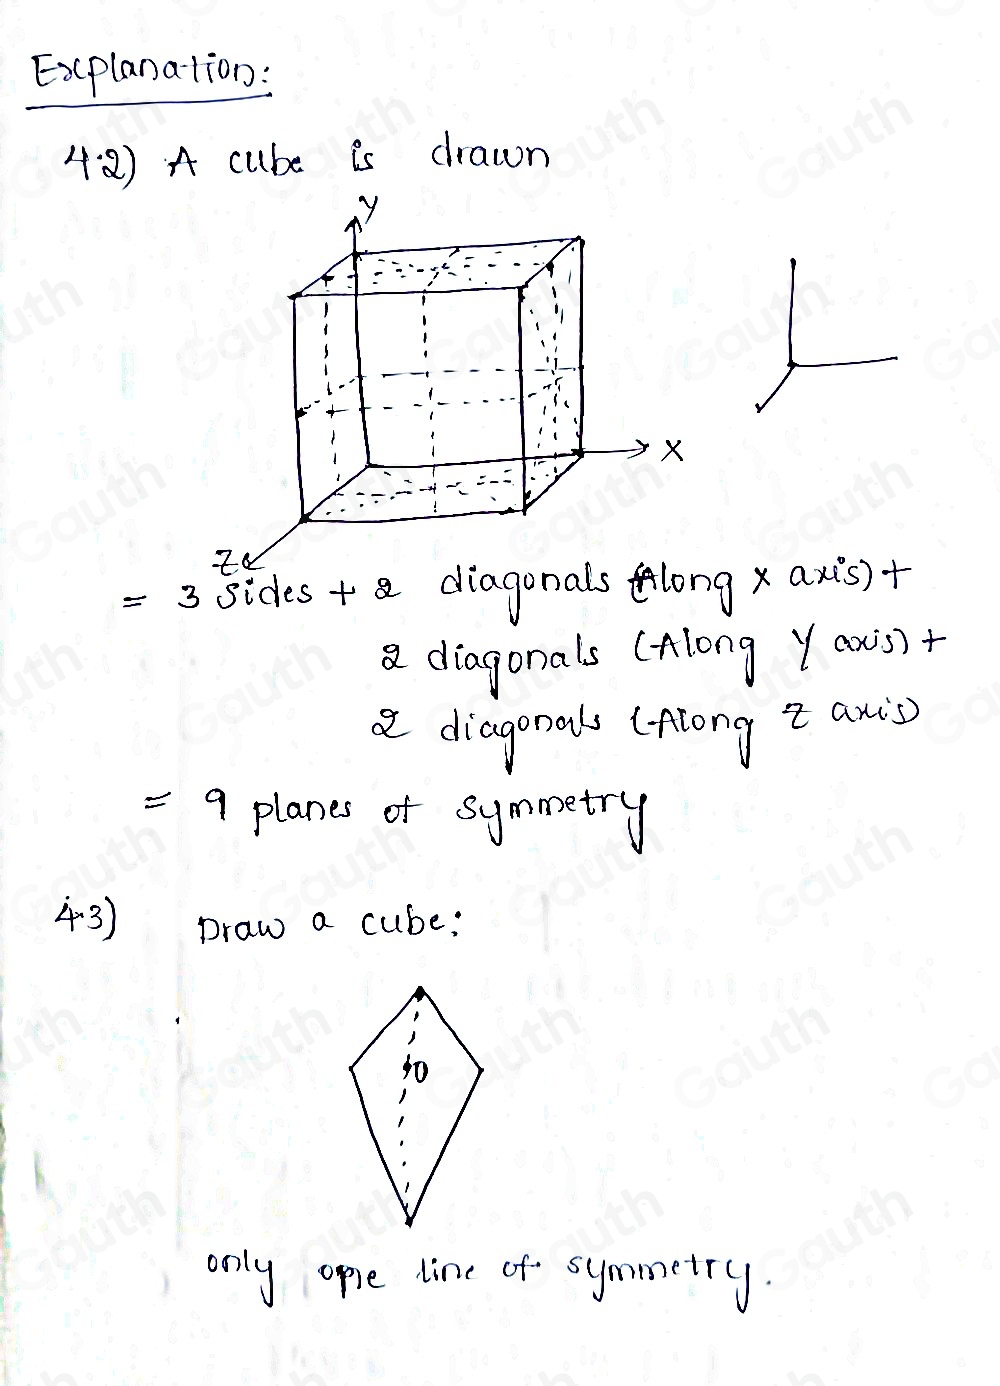 Explanation:
4.2) A cube is drawn
y
X
Z
= 3 sides + 2 diagonals (Along x axis) +
2 diagonals (Along y axis) +
2 diagonals (Along z axis)
= 9 planes of symmetry
4.3) Draw a cube:
O
only one line of symmetry.
Gauth